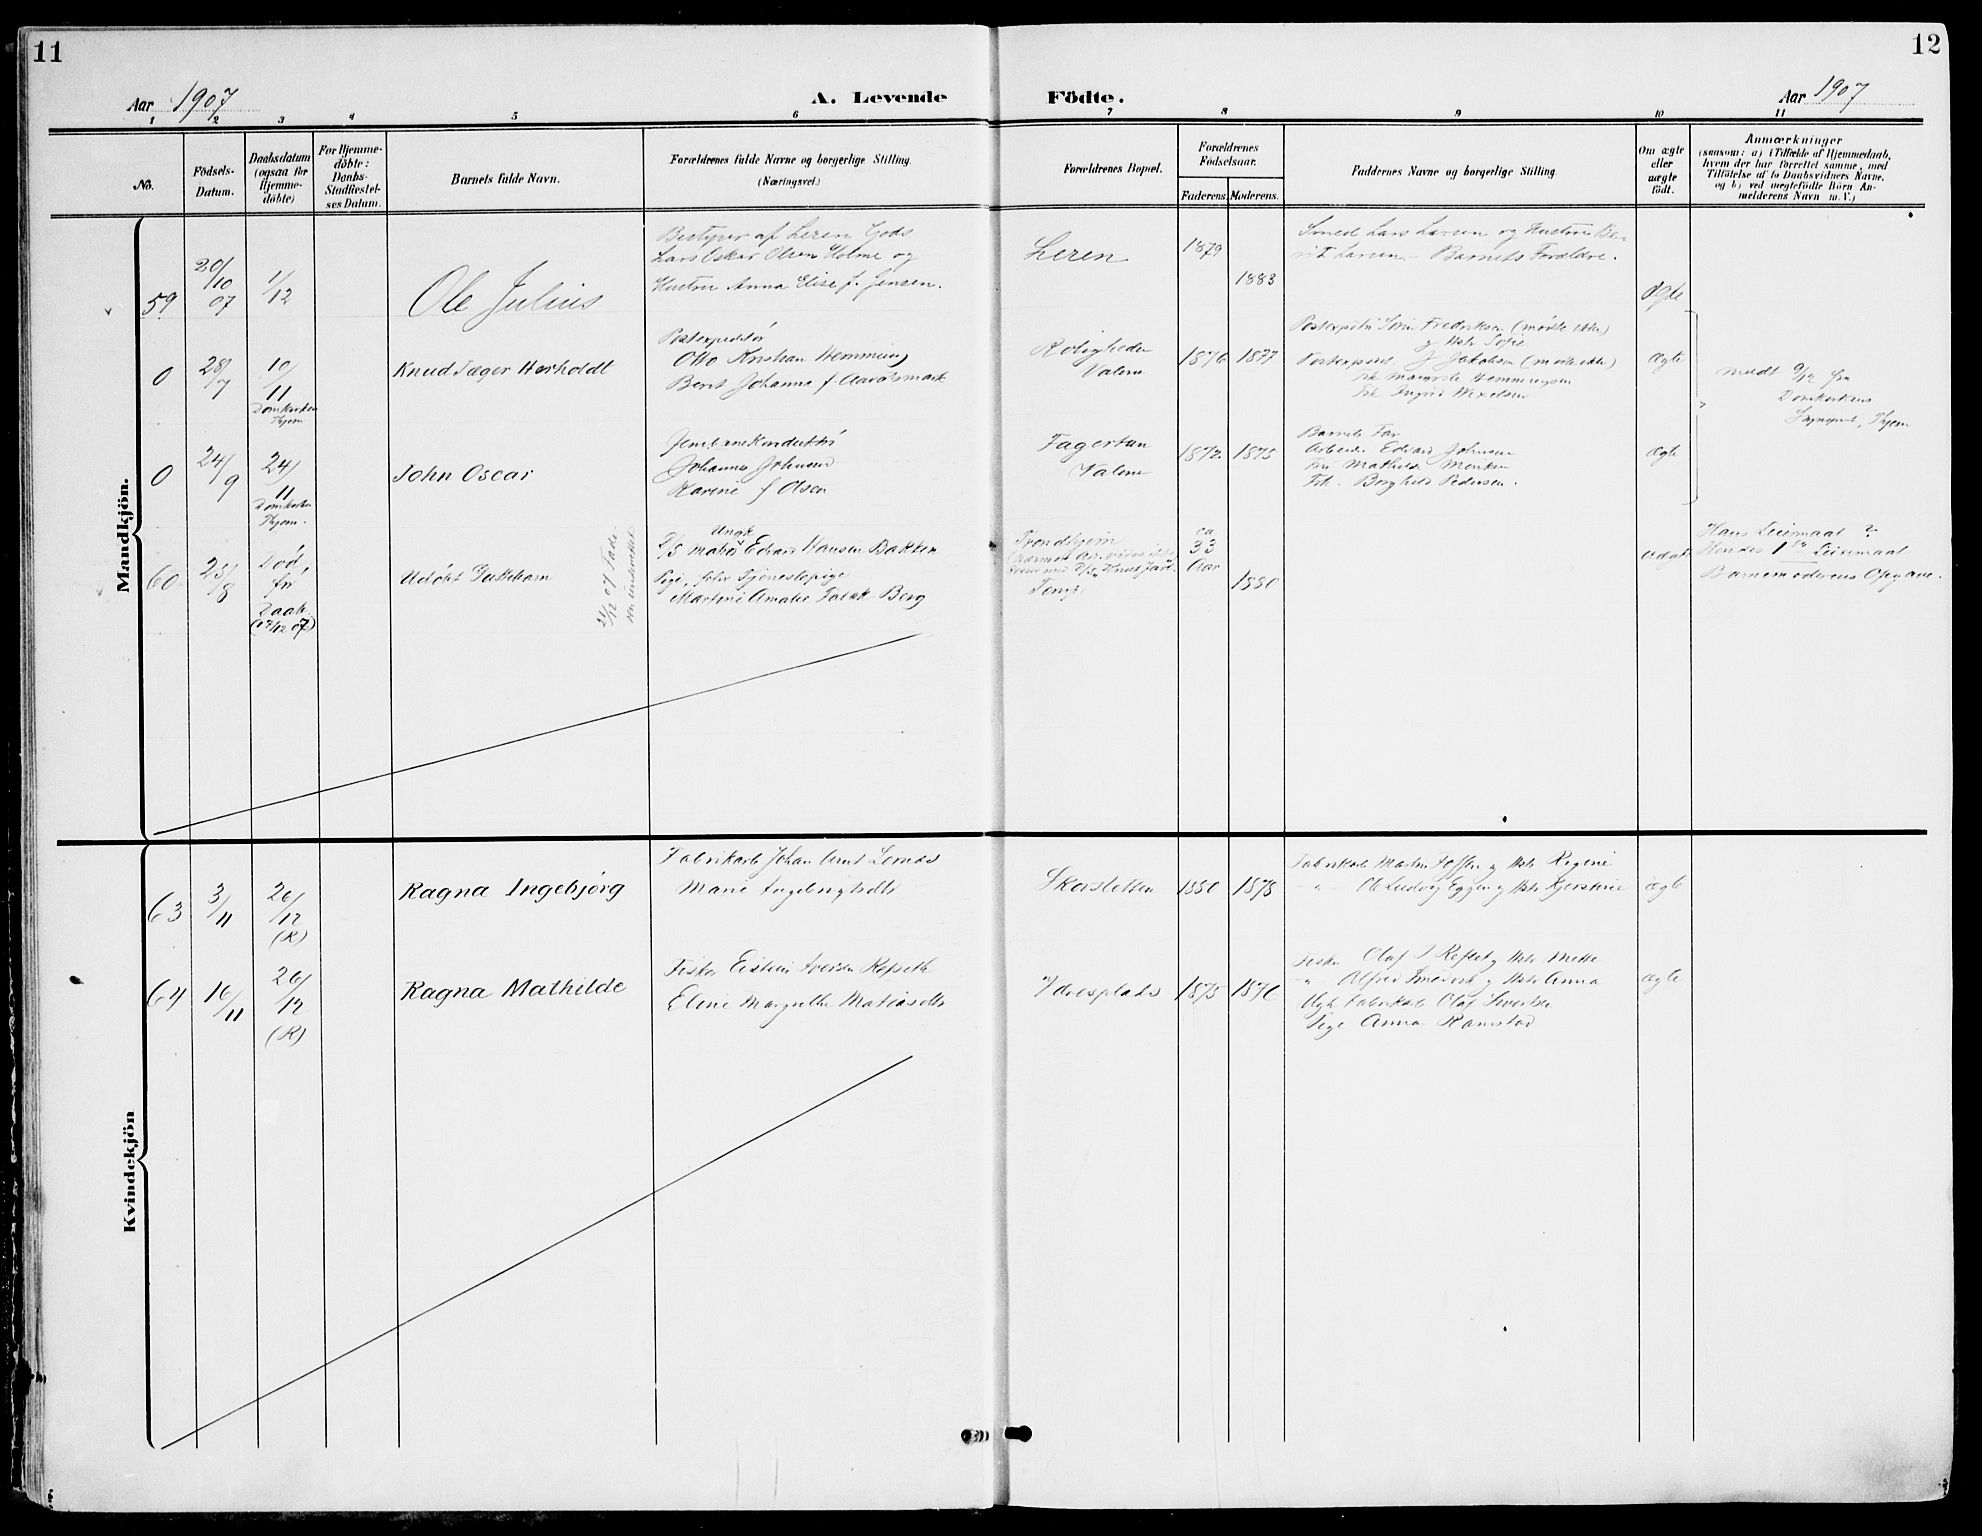 11
12
Aar 1907
A. Levende
Födte.
Aar 1907
1 2 3 4 5 6 7 8 9 10 11
No.
Födsels-
Datum.
Daabsdatum
(ogsaa for
Hjemme-
döbte)
For Hjemme-
döbte:
Daabs-
Stadfæstel-
ses Datum.
Barnets fulde Navn.
Forældrenes fulde Navne og borgerlige Stilling.
(Næringsvei.)
Forældrenes Bopæl.
Forældrenes
Födselsaar.
Faderens.
Moderens.
Faddernes Navne og borgerlige Stilling.
Om ægte
eller
uægte
födt.
Anmærkninger
(saasom: a) i Tilfælde af Hjemmedaab,
hvem der har forrettet samme, med
Tilföielse af to Daabsvidners Navne,
og b) ved uægtefödte Börn An-
melderens Navn m. V.)
Mandkjön.
59
20/10 07
1/12
Ole Julius
Bestyrer af Leren Gods
Lars Oskar Olsen Holme og
Hustru Anna Elise f. Jensen.
Leren
1879
1883
Smed Lars Larsen og Hustru Be-
rit Larsen. - Barnets Forældre.
ægte
0
28/7
10/11
Domkirken
Thjem
Knud Jæger Herholdt
Postexpeditör
Otto Kristian Hemming
Beret Johanne f. Aavatsmark
Roligheden
Valene
1876
1877
Fredriksen (mødte ikke)
og Hstr Sofie
Jakobsen (mødte ikke)
Frk Hemmingsen
Frk Ingrid Wexelsen
ægte
meldt 9/12 fra
Domkirkens
Sogneprest, Thjem
0
24/9
24/11
Domkirken
Thjem.
John Oscar
Jernbanekonduktör
Johannes Johnsen
Karine f. Olsen
Fagertun
Valene
1872
1875
Barnets Far
Arbeider Edvard Johnsen
Fru Mathilde
Frk. Borghild Pedersen.
ægte
60
23/8
Död,
för
Daab.
(17/12 07)
Udöbt Guttebarn
21/12 07
Ungk
Edvard Hansen Bakken
Pige, forhv Tjenestepige
Martine Amalie Falæk Berg
Trondhjem
Tempe
ca
33
Aar
1880
uægte
Hans Leiermaal ?
Hendes 1ste Leiermaal
Barnemoderens Opgave.
Kvindekjön
63
3/11
26/12
(R)
Ragna Ingebjörg
Fabrikarb Johan Arnt Lernæs
Marie Ingebrigtsdtr
Skorstetten
1880
1878
Fabrikarb Martin Fossen og Hstr Regine
- " - Ole Ludvig Eggen og Hstr Kjerstine
ægte
64
16/11
26/12
(R)
Ragna Mathilde
Fisker Eistein Iversen Refseth
Eline Margrethe Matiasdtr
Ydresplads
1875
1876
Fisker Olaf J Refset og Hstr Mette
" Alfred Smedvik og Hstr Anna
Ugk Fabrikarb Olaf Sivertsen
Pige Anna Ramstad
ægte